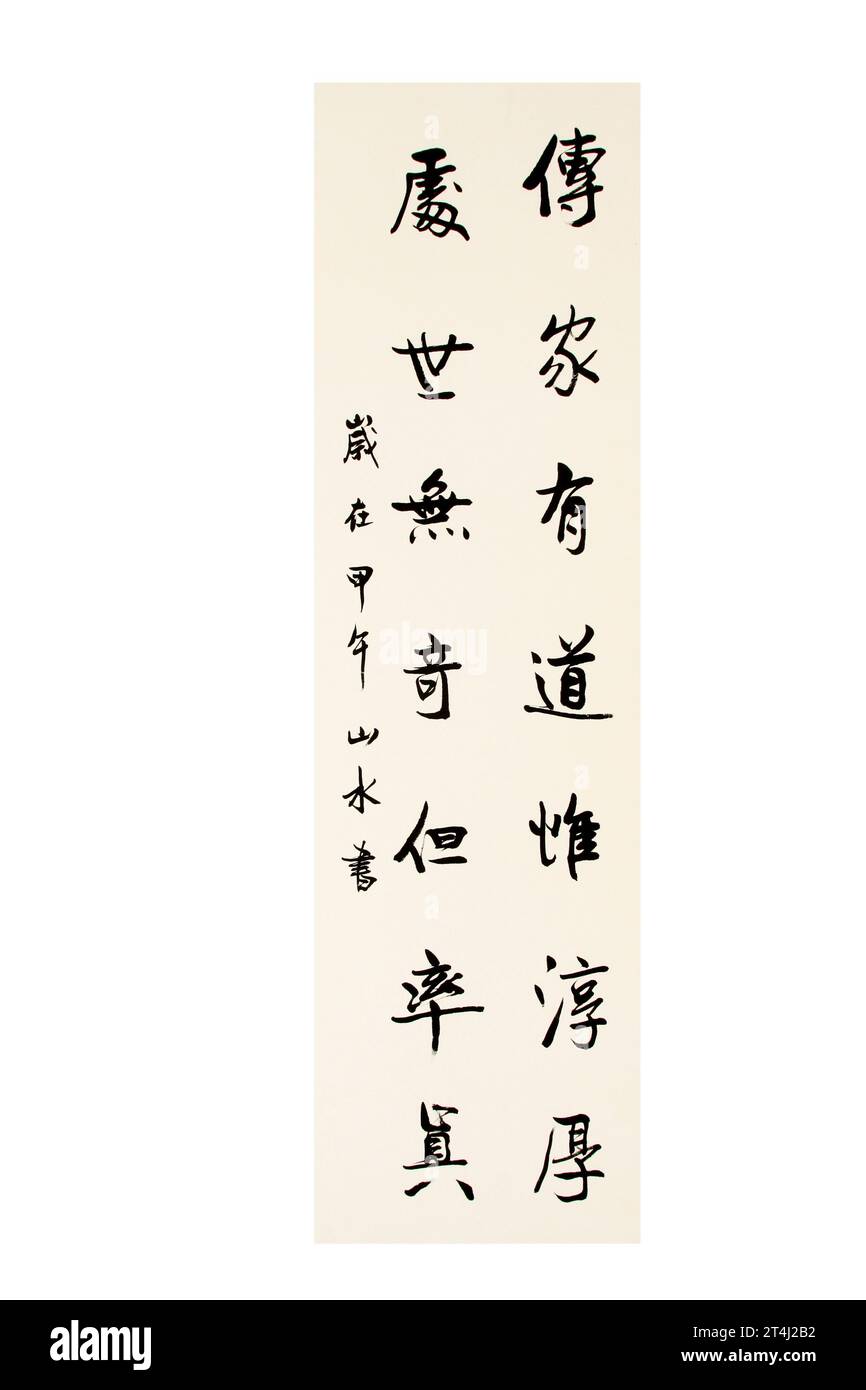 傳家有道惟淳厚
處世無奇但率真
歲在甲午山水書
a
a
a
alamy
a
a
a
alamy
Image ID: 2T4J2B2
www.alamy.com